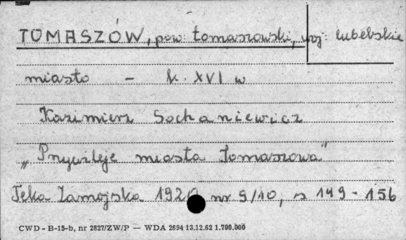 TOMASZÓW, pow. tomaszowski, woj: lubelskie
miasto - k. XVI w
Kazimierz Sochaniewicz
„Przywileje miasta Tomaszowa"
Teka Zamojska 1920 nr 9/10, s 149-156
CWD - B-15-b, nr 2827/ZW/P — WDA 2694 13.12.62 1.700.000